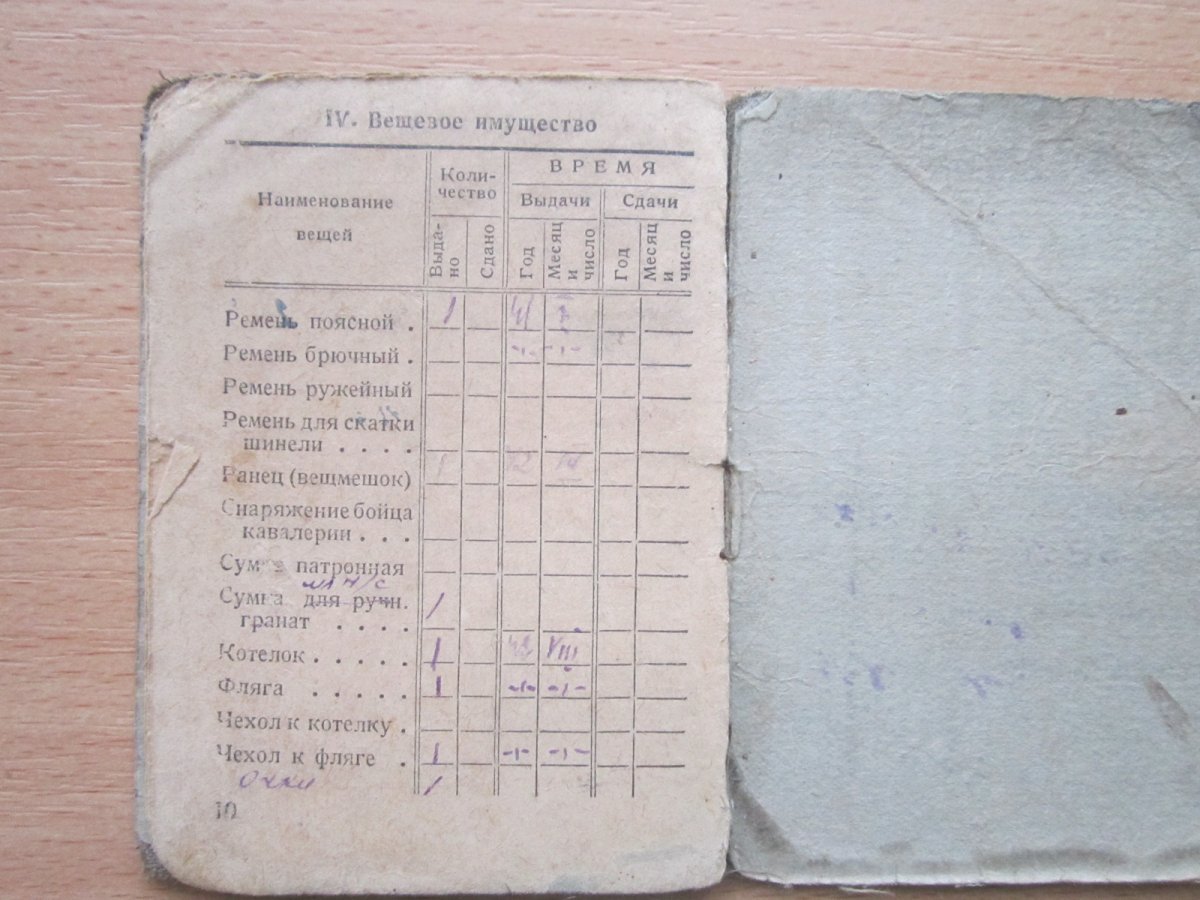 IV. Вещевое имущество
Наименование вещей
Коли-
чество
ВРЕМЯ
Выдачи
Сдачи
Выда-
но
Сдано
Год
Месяц
и
число
Год
Месяц
и
число
Ремень поясной . 1 41
Ремень брючный .
Ремень ружейный
Ремень для скатки
шинели . . . .
Ранец (вещмешок) 1 42
Снаряжение бойца
кавалерии . . .
Сумка патронная
Сумка для ручн. 1
гранат . . . .
Котелок . . . . . 1 42 VIII
Фляга . . . . . 1 -"- -"-
Чехол к котелку .
Чехол к фляге . 1 -"- -"-
Очки 1
10